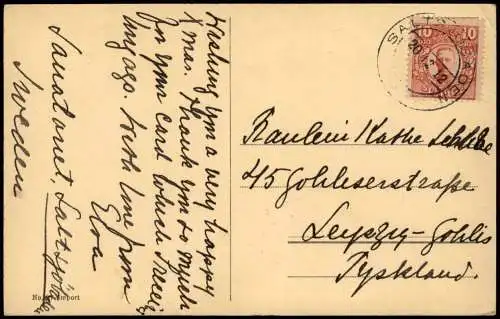 Wishing you a very happy
X mas. Thank you so much
for your card which I received
long ago. With love from
Elva
Sanatoriet, Saltsjöbaden
Sweden
SALTSJÖBADEN
10 10
Fräulein Käthe
45 Gohliserstraße
Leipzig-Gohlis
Tyskland.
Import